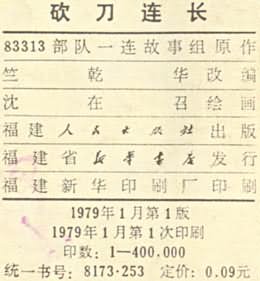 砍刀连长
83313部队一连故事组原作
竺乾华改编
沈在召绘画
福建人民出版社出版
福建省新华书店发行
福建新华印刷厂印刷
1979年1月第1版
1979年1月第1次印刷
印数：1—400,000
统一书号：8173·253 定价：0.09元